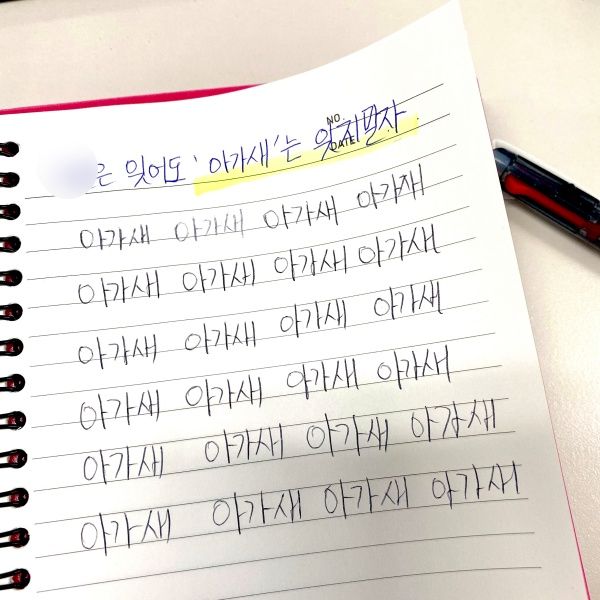 NO.
DATE.
은 잊어도 '아가새'는 잊지말자
아가새 아가새 아가새 아가재
아가새 아가새 아가새 아가새
아가새 아가새 아가새 아가새
아가새 아가새 아가새 아가새
아가새 아가새 아가새 아가새
아가새 아가새 아가새 아가새